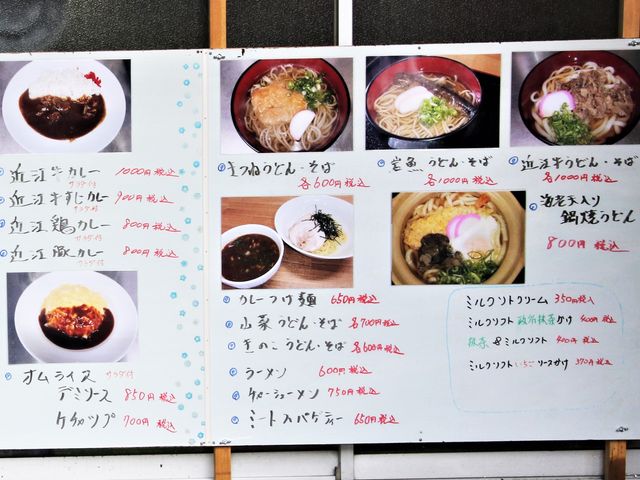 近江牛カレー 1000円 税込
サラダ付
近江牛すじカレー 900円 税込
サラダ付
近江鶏カレー 800円 税込
サラダ付
近江豚カレー 800円 税込
サラダ付
オムライス サラダ付
デミソース 850円 税込
ケチャップ 700円 税込
きつねうどん・そば
各600円 税込
岩魚うどん・そば
各1000円 税込
近江牛うどん・そば
各1000円 税込
海老天入り
鍋焼うどん
800円 税込
カレーつけ麺 650円 税込
山菜うどん・そば 各700円 税込
きのこうどん・そば 各600円 税込
ラーメン 600円 税込
チャーシューメン 750円 税込
ミートスパゲティー 650円 税込
ミルクソフトクリーム 350円 税込
ミルクソフト 政所抹茶かけ 400円 税込
抹茶&ミルクソフト 400円 税込
ミルクソフト いちごソースかけ 370円 税込